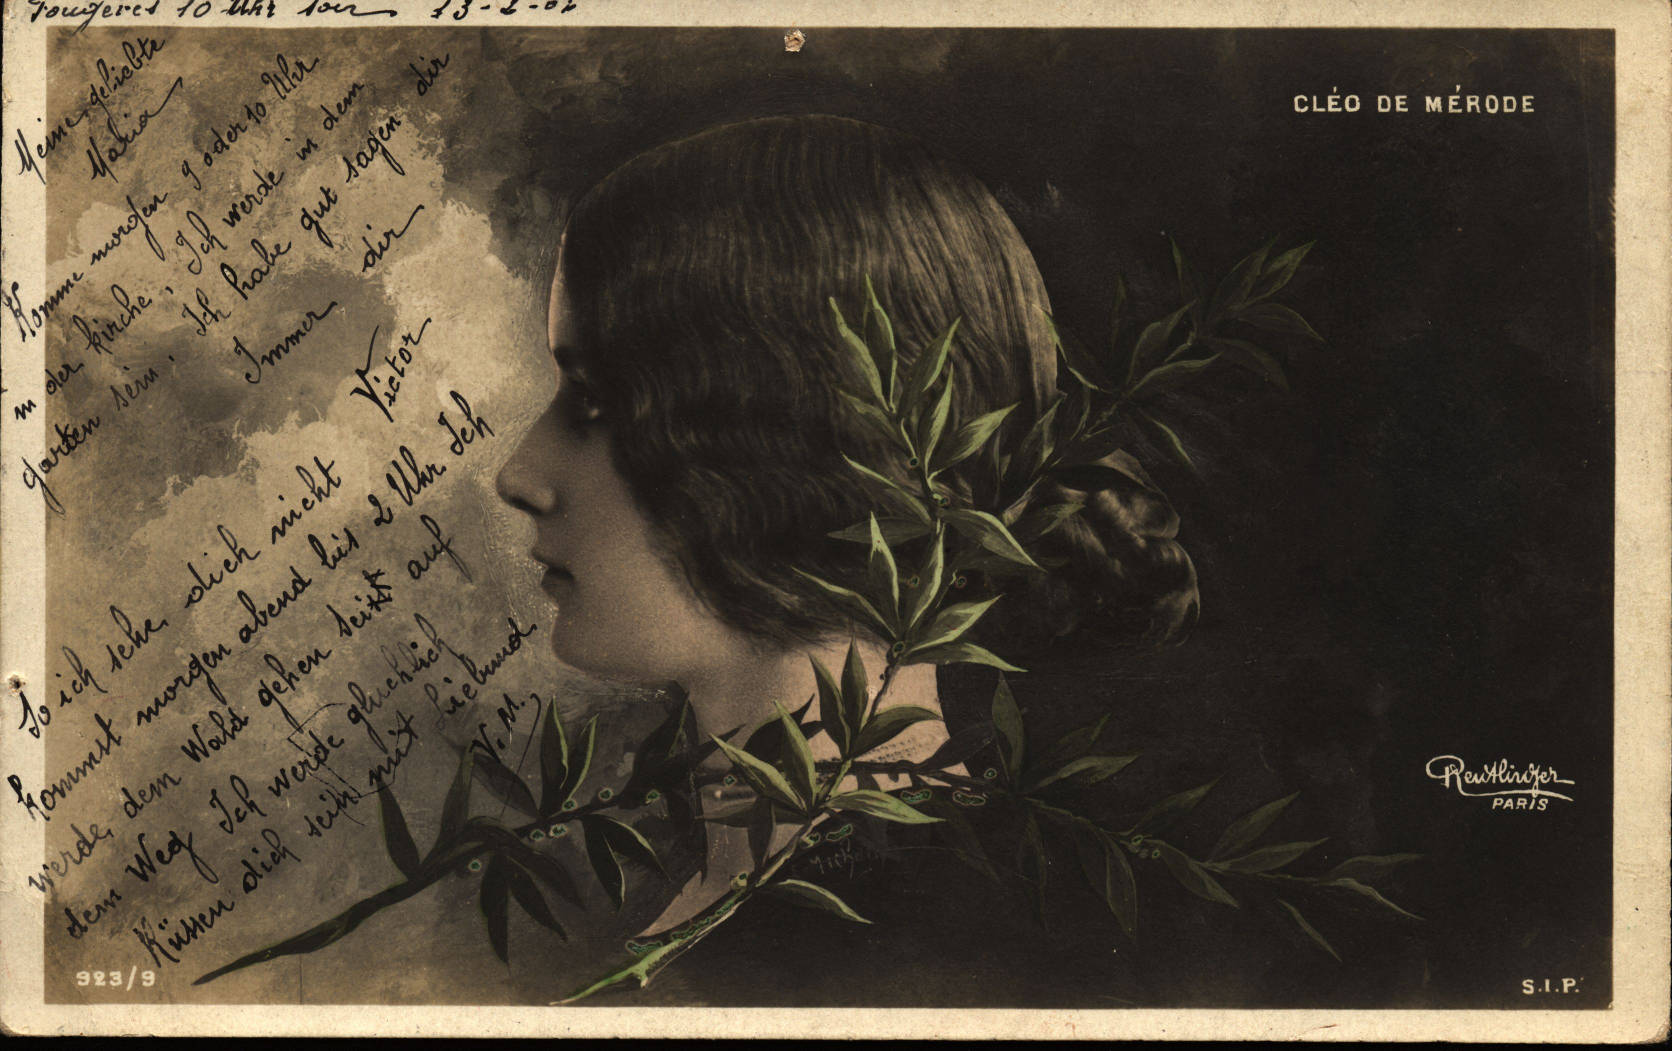 Fougeres 10 Uhr soir 13-2-02
Meine geliebte
Maria
Komme morgen 9 oder 10 Uhr
in der kirche; Ich werde in dem
garten sein. Ich habe gut sagen dir
Immer dir
Victor
So ich sehe dich nicht
kommst morgen abend bis 2 Uhr Ich
werde dem Wald gehen seitt auf
dem Weg Ich werde gluchlich
Küssen dich sein mit Liebund
V. M.
CLÉO DE MÉRODE
Reutlinger
PARIS
923/9
S.I.P.